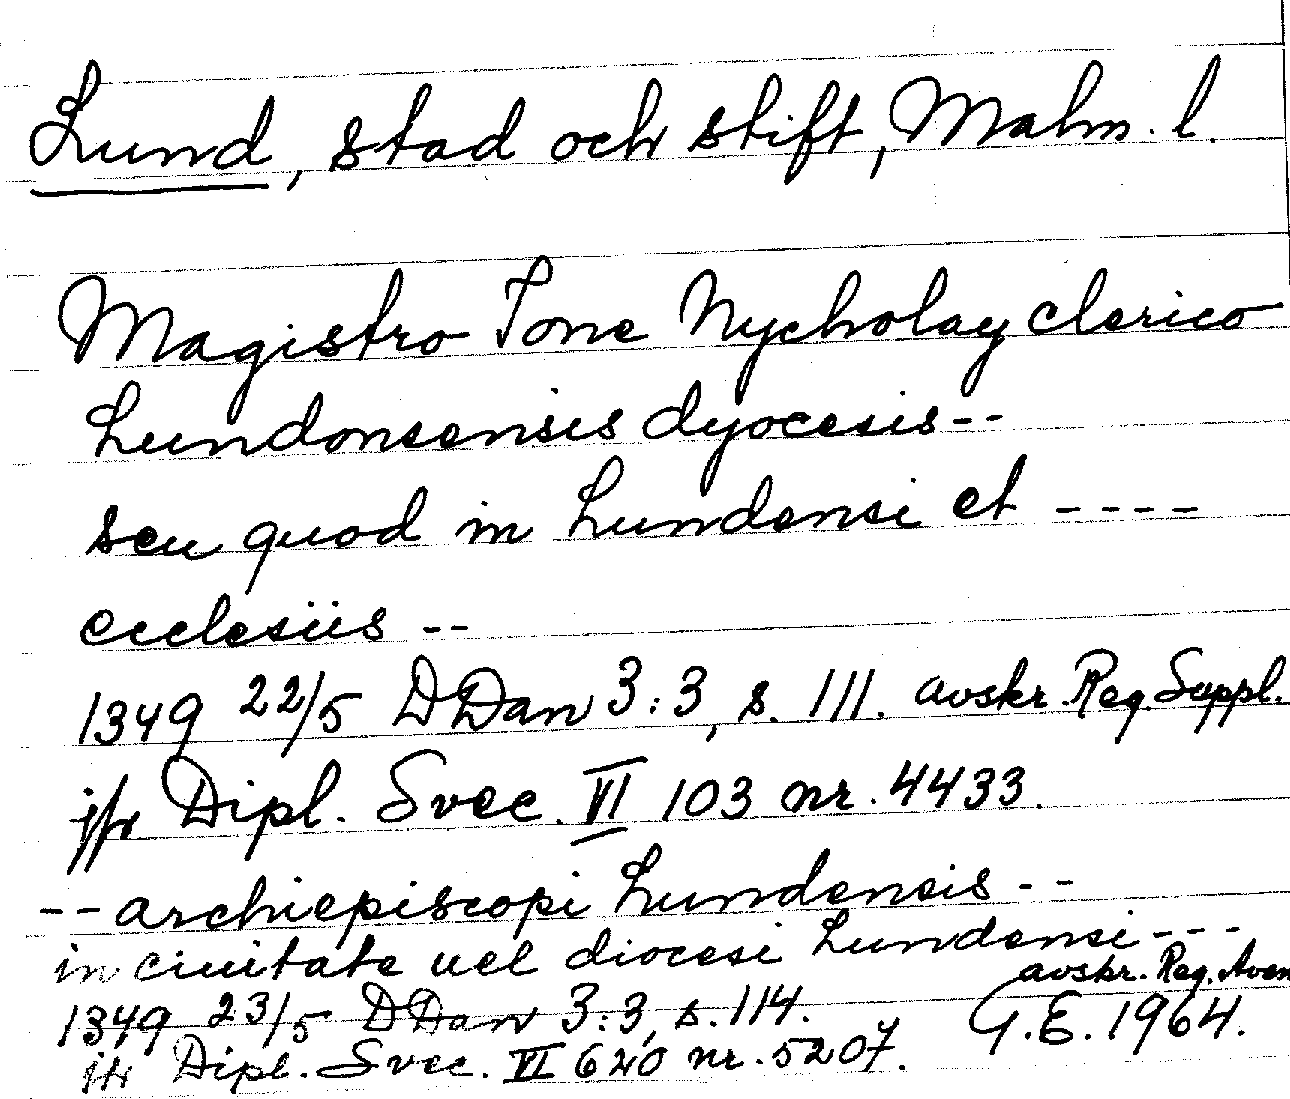 Lund, stad och stift, Malm. l.
Magistro Tone Nycholay clerico
Lundonsensis dyocesis--
seu quod in Lundensi et ----
ecclesiis --
1349 22/5 DDan 3:3, s. 111. avskr. Reg. Suppl.
jfr Dipl. Svec. VI 103 nr. 4433.
--archiepiscopi Lundensis --
in ciuitate uel diocesi Lundensi ---
avskr. Reg. Aven
1349 23/5 DDan 3:3, s. 114. G.E. 1964.
jfr Dipl. Svec. VI 620 nr. 5207.